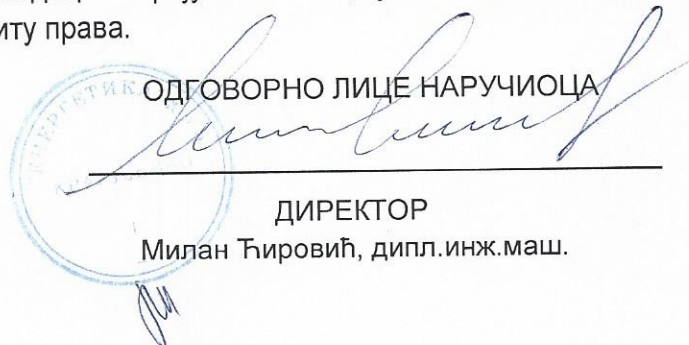 иту права.
ОДГОВОРНО ЛИЦЕ НАРУЧИОЦА
ДИРЕКТОР
Милан Ћировић, дипл.инж.маш.